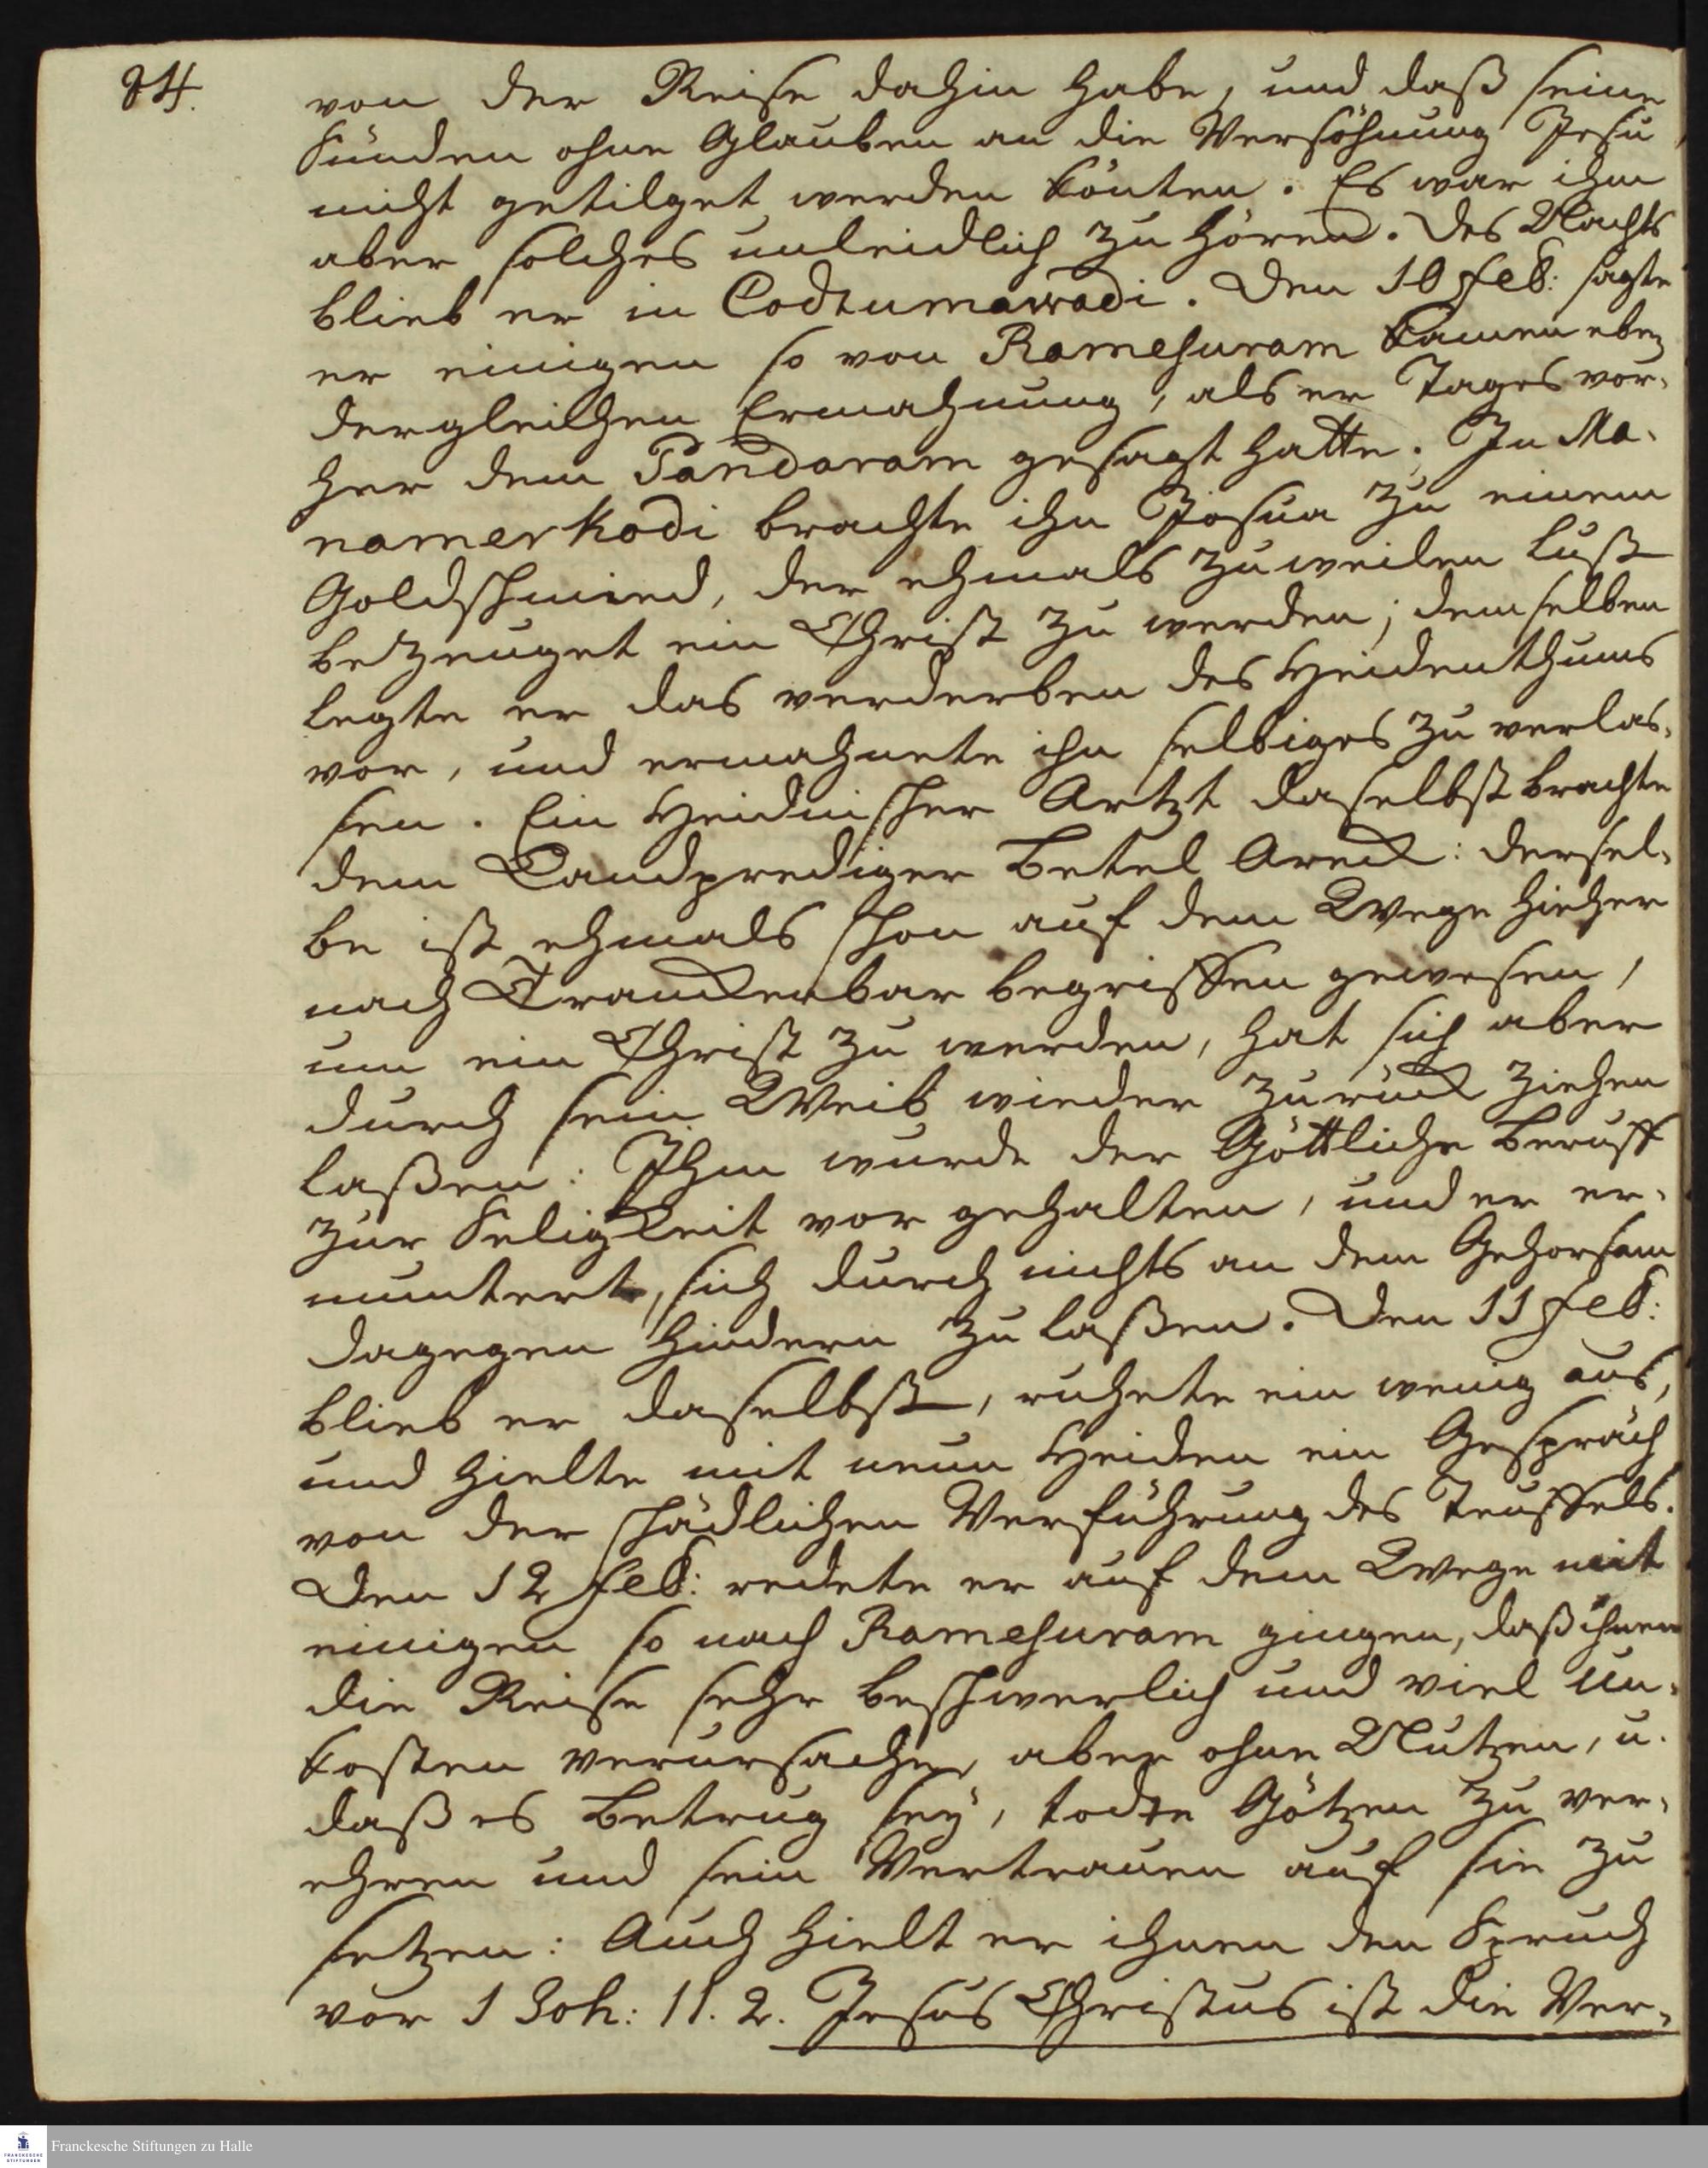 84.
von der Reise dahin habe, und daß seine
Sünden ohne Glauben an die Versöhnung Jesu
nicht getilget werden könten. Es war ihm
aber solches unleidlich zu hören. Des Nachts
blieb er in Codtumawadi. Den 10 Feb: sagte
er einigen so von Ramesuram kamen eben
dergleichen Ermahnung, als er Tages vor-
her dem Pandaram gesagt hatte. In Ma-
namerkodi brachte ihn Josua zu einem
Goldschmied, der ehmals zuweilen Lust
bezeuget ein Christ zu werden; demselben
legte er das verderben des Heidenthums
vor, und ermahnete ihn selbiges zu verlas-
sen. Ein Heidnischer Artzt daselbst brachte
dem Landprediger Betel Areck: dersel-
be ist ehmals schon auf dem Wege hieher
nach Tranckenbar begriffen gewesen,
um ein Christ zu werden, hat sich aber
durch sein Weib wieder zurück ziehen
laßen: Ihm wurde der Göttliche Beruff
zur Seligkeit vor gehalten, und er er-
muntert, sich durch nichts an dem Gehorsam
dagegen hindern zu laßen. Den 11 Feb:
blieb er daselbst, ruhete ein wenig aus,
und hielte mit neun Heiden ein Gespräch
von der schädlichen Verführung des Teuffels.
Den 12 Feb: redete er auf dem Wege mit
einigen so nach Ramesuram gingen, daß ihnen
die Reise sehr beschwerlich und viel Un-
kosten verursache, aber ohne Nutzen, u.
daß es Betrug sey, todte Götzen zu ver-
ehren und sein Vertrauen auf sie zu
setzen: Auch hielt er ihnen den Spruch
vor 1 Joh: 11. 2. Jesus Christus ist die Ver-
Franckesche Stiftungen zu Halle